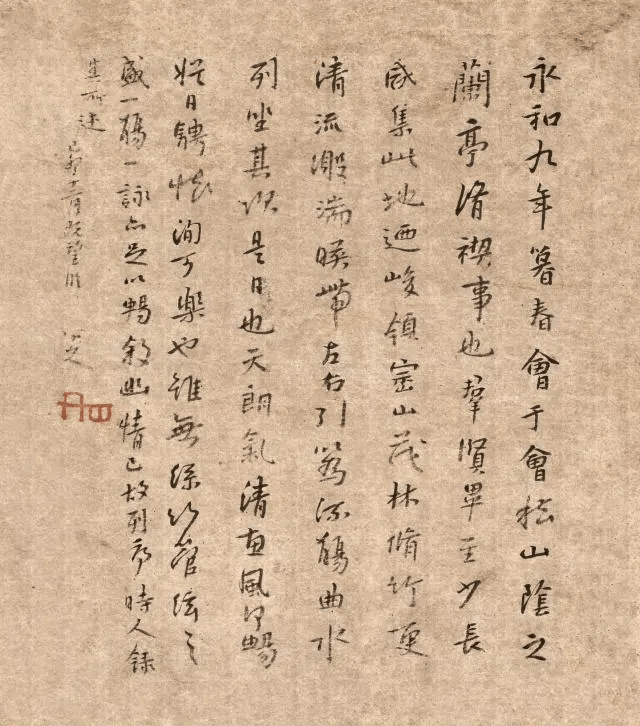 永和九年暮春會于會稽山陰之
蘭亭脩禊事也羣賢畢至少長
咸集此地迺峻領崇山茂林脩竹更
清流激湍暎帶左右引為流觴曲水
列坐其次是日也天朗氣清惠風和暢
娛目騁懷洵可樂也雖無絲竹管絃之
盛一觴一詠亦足以暢敘幽情已故列序時人錄
所述 己卯 既望臨